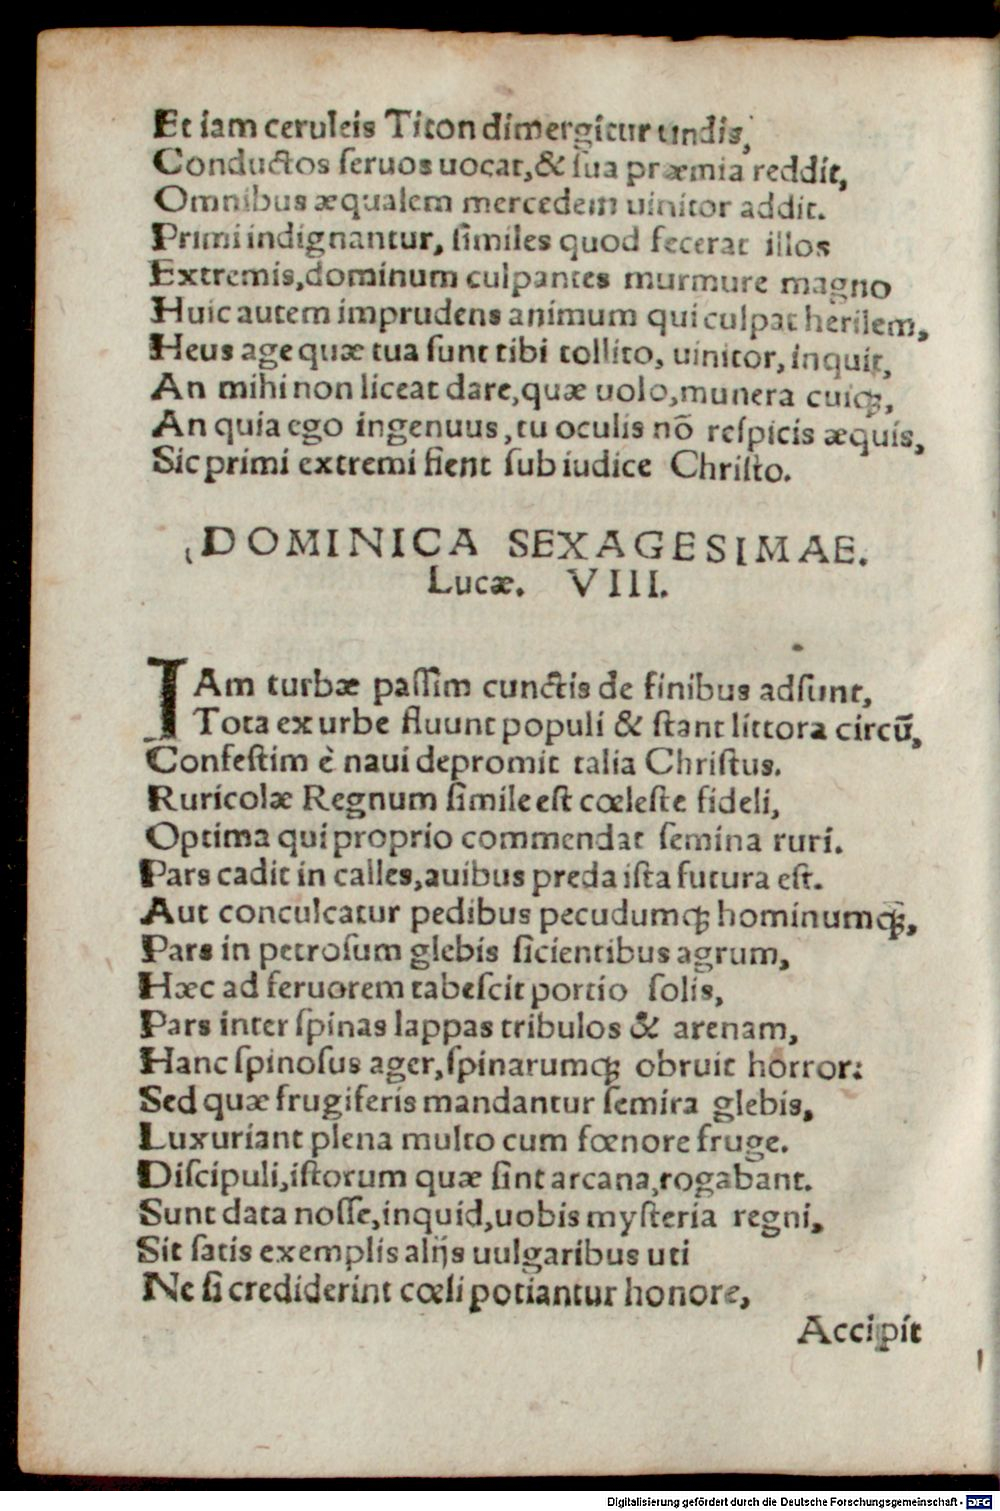 Et iam ceruleis Titon dimergitur undis,
Conductos ſeruos uocat, & ſua præmia reddit,
Omnibus æqualem mercedem uinitor addit.
Primi indignantur, ſimiles quod fecerat illos
Extremis, dominum culpantes murmure magno
Huic autem imprudens animum qui culpat herilem,
Heus age quæ tua ſunt tibi tollito, uinitor, inquit,
An mihi non liceat dare, quæ uolo, munera cuiqꝫ,
An quia ego ingenuus, tu oculis nõ reſpicis æquis,
Sic primi extremi fient ſub iudice Chriſto.
DOMINICA SEXAGESIMAE.
Lucæ. VIII.
IAm turbæ paſſim cunctis de finibus adſunt,
Tota ex urbe fluunt populi & ſtant littora circũ,
Confeſtim è naui depromit talia Chriſtus.
Ruricolæ Regnum ſimile eſt cœleſte fideli,
Optima qui proprio commendat ſemina ruri.
Pars cadit in calles, auibus preda iſta futura eſt.
Aut conculcatur pedibus pecudumqꝫ hominumqꝫ,
Pars in petroſum glebis ſicientibus agrum,
Hæc ad feruorem tabeſcit portio ſolis,
Pars inter ſpinas lappas tribulos & arenam,
Hanc ſpinoſus ager, ſpinarumqꝫ obruit horror:
Sed quæ frugiferis mandantur ſemira glebis,
Luxuriant plena multo cum fœnore fruge.
Diſcipuli, iſtorum quæ ſint arcana, rogabant.
Sunt data noſſe, inquid, uobis myſteria regni,
Sit ſatis exemplis alijs uulgaribus uti
Ne ſi crediderint cœli potiantur honore,
Accipit
Digitalisierung gefördert durch die Deutsche Forschungsgemeinschaft - DFG